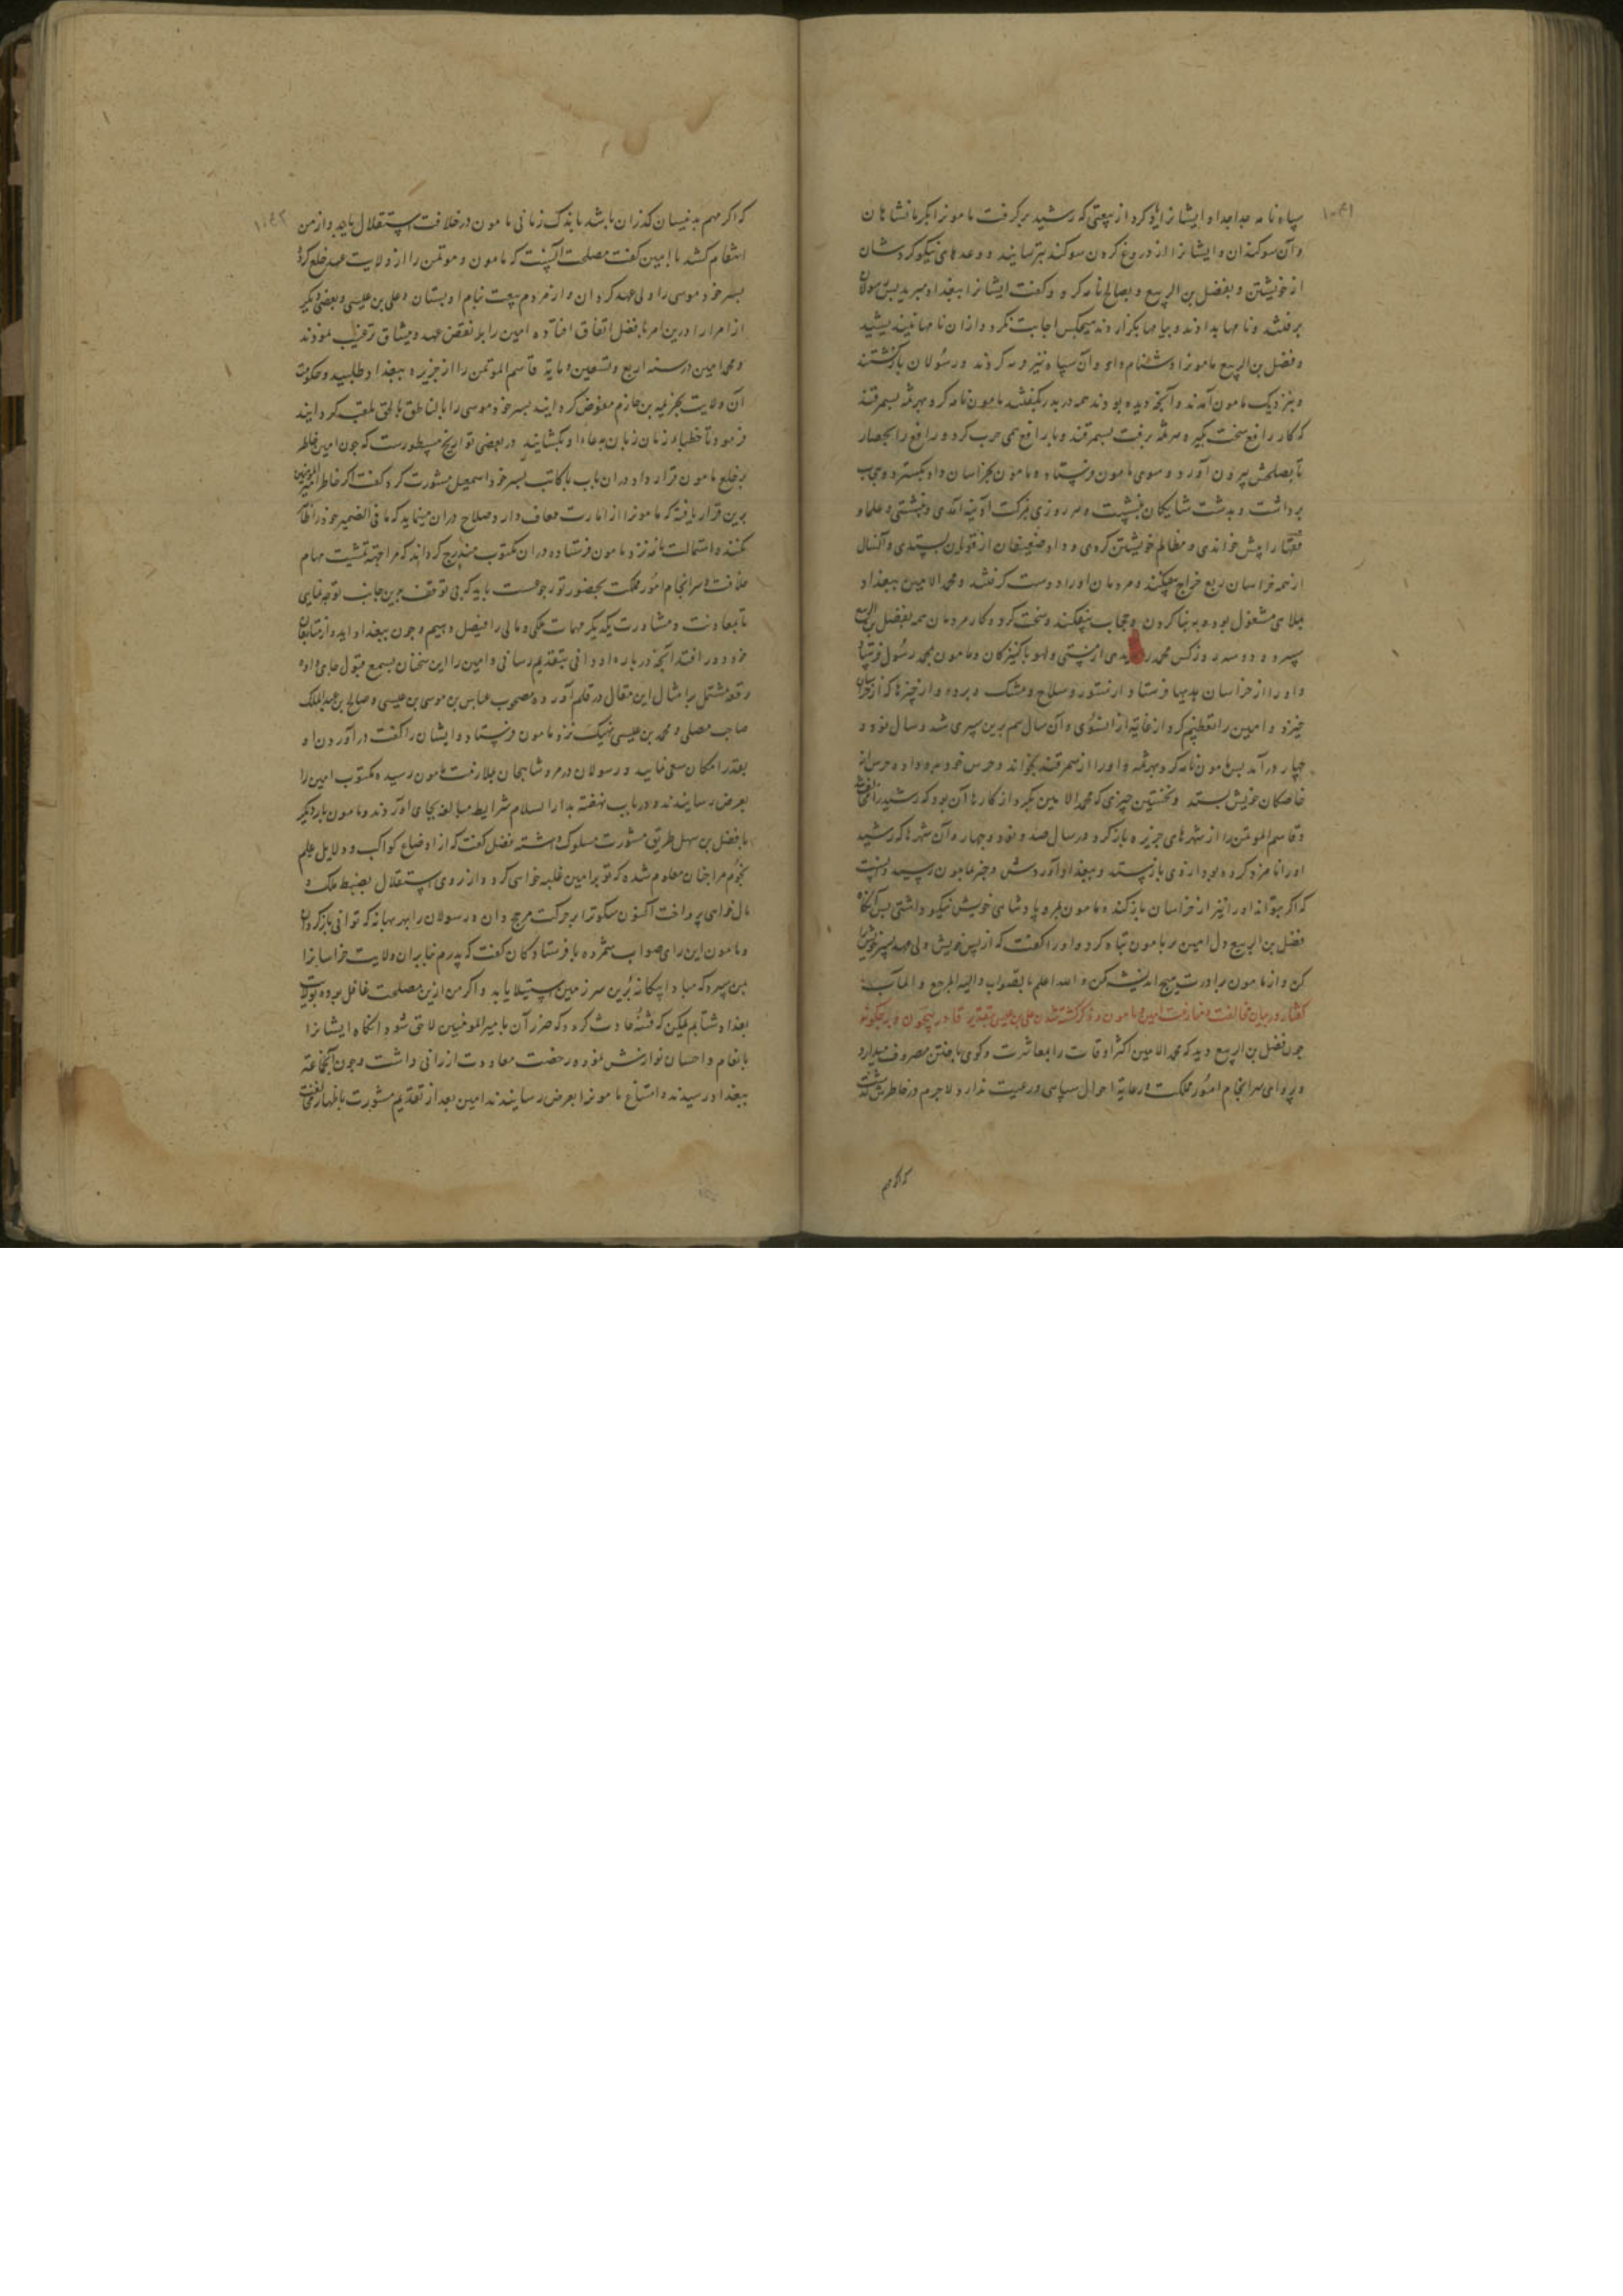 سپاه نامه جدا جدا و ایشانرا یاد کرد از بیعتی که رشید برگرفت مامونرا بکرمانشاهان
و آن سوکندان و ایشانرا از دروغ کردن سوکند بترسانید و وعدهای نیکو کردشان
از خویشتن و بفضل بن الربیع و بصالح نامه کرد و گفت ایشانرا ببغداد مبرید پس رسولان
برفتند و نامها بدادند و پیامها بگزاردند هیچکس اجابت نکرد و از آن نامها نیندیشید
و فضل بن الربیع مامونرا دشنام داد و آن سپاه نیز و نه کردند و رسولان بازگشتند
و بنزدیک مامون آمدند و آنچه دیده بودند همه در بدر بگفتند مامون نامه کرد و هرثمه بسمرقند
که کار رافع سخت گیر هرثمه برفت بسمرقند و با رافع همی حرب کرد و رافع را بحصار
تا بصلحش بیرون آورد و سوی مامون فرستاد و مامون بخراسان داد بگسترد و
برداشت و بدشت شایکان بنشست و هر روزی بمزکت آدینه آمدی و بنشستی و علما و
فقها را پیش خواندی و مظالم خویشتن کردی و داد ضعیفان از قویان بستدی و آنسال
از همه خراسان ربع خراج بیفکند و مردمان او را دوست گرفتند و محمد الامین ببغداد
بملاهی مشغول بود و به بنا کردن و حجاب بیفکند و سخت کرد و کار مردمان همه بفضل بن الربیع
سپرد و دو سه روز کس محمد را ندیدی از مستی و لهو با کنیزکان و مامون بمحمد رسول فرستاد
و او را از خراسان هدیها فرستاد از ستور و سلاح و مشک و برده و از چیزها که از خراسان
خیزد و امین را تعظیم کرد و آن سال هم برین سپری شد و سال نود و
چهار درآمد پس مامون نامه کرد و هرثمه را از سمرقند بخواند و حرس خود بدو داد و حرس از
خاصکان خویش بستد و نخستین چیزی که محمد الامین بکرد از کارها آن بود که رشید
و قاسم الموتمن را از شهرهای جزیره باز کرد در سال صد و نود و چهار و آن شهرها که رشید
او را نامزد کرده بود از وی بازستد و ببغداد آوردش و خبر بمامون رسید دانست
که اگر بتواند او را نیز از خراسان باز کند و مامون بمرو پادشاهی خویش نیکو داشتی پس آنگاه
فضل بن الربیع دل امین بر مامون تباه کرد و او را گفت که از پس خویش ولی عهد پسر خویش را
کن و از مامون برادرت هیچ اندیشه مکن و الله اعلم بالصواب والیه المرجع و المآب
گفتار در بیان مخالفت و منازعت امین و مامون و ذکر کشته شدن علی بن عیسی بتقدیر قادر بیچون
چون فضل بن الربیع دید که محمد الامین اکثر اوقات را بمعاشرت و کوی باختن مصروف میدارد
و پروای سرانجام امور مملکت و رعایة احوال سپاهی و رعیت ندارد لاجرم در خاطرش گذشت
که اگر مهم
که اگر مهم بدینسان گذران باشد باندک زمانی مامون در خلافت استقلال یابد و از من
انتقام کشد با امین گفت مصلحت آنست که مامون و موتمن را از ولایت عهد خلع کرده
پسر خود موسی را ولی عهد گردان و از مردم بیعت بنام او بستان و علی بن عیسی و بعضی دیگر
از امرا درین امر با فضل اتفاق افتاده امین را بر نقض عهد و میثاق ترغیب نمودند
و محمد امین در سنه اربع و تسعین و مایه قاسم الموتمن را از جزیره ببغداد طلبید و حکومت
آن ولایت بخزیمه بن خازم مفوض گردانید پسر خود موسی را بالناطق بالحق ملقب گردانید
فرمود تا خطباء زمان زبان بدعاء او بگشایند در بعضی تواریخ مسطورست که چون امین خاطر
بر خلع مامون قرار داد در آن باب با کاتب پسر خود اسمعیل مشورت کرد گفت اگر خاطر امیرالمومنین
برین قرار یافته که مامونرا از امارت معاف دارد صلاح در آن مینماید که ما فی الضمیر خود را ظاهر
نکنند و استمالت نامه نزد مامون فرستاده در آن مکتوب مندرج گرداند که مرا جهة تمشیت مهام
خلافت و سرانجام امور مملکت بحضور تو رجوعست باید که بی توقف برین جانب توجه نمایی
تا بمعاونت و مشاورت یکدیگر مهمات ملکی و مالی را فیصل دهیم و چون ببغداد آید و از متابعان
خود دور افتد آنچه درباره او دانی بتقدیم رسانی و امین را این سخنان بسمع قبول جای داده
رقعه مشتمل بر امثال این مقال در قلم آورده مصحوب عباس بن موسی بن عیسی و صالح بن عبدالملک
صاحب مصلی و محمد بن عیسی نهیک نزد مامون فرستاد و ایشان را گفت در آوردن او
بقدر امکان سعی نمایید و رسولان در مرو شاهجان بملازمت مامون رسیده مکتوب امین را
بعرض رسانیدند و در باب نهضت بدارالسلام شرایط مبالغه بجای آوردند و مامون بار دیگر
با فضل بن سهل طریق مشورت مسلوک داشته فضل گفت که از اوضاع کواکب و دلایل علم
نجوم مرا چنان معلوم شده که تو بر امین غلبه خواهی کرد و از روی استقلال بضبط ملک و
مال خواهی پرداخت اکنون سکون را بر حرکت مرجح دان و رسولان را بهر بهانه که توانی بازگردان
و مامون این رای صواب شمرده با فرستادگان گفت که پدرم بنابر آن ولایت خراسانرا
بمن سپرد که مبادا بیگانه برین سرزمین استیلا یابد و اگر من ازین مصلحت غافل بوده بولایت
بغداد شتابم یمکن که فتنه حادث گردد که ضرر آن بامیرالمومنین لاحق شود آنگاه ایشانرا
بانعام و احسان نوازش نموده رخصت معاودت ارزانی داشت و چون آنجماعت
ببغداد رسیدند و امتناع مامونرا بعرض رسانیدند امین بعد از تقدیم مشورت باظهار